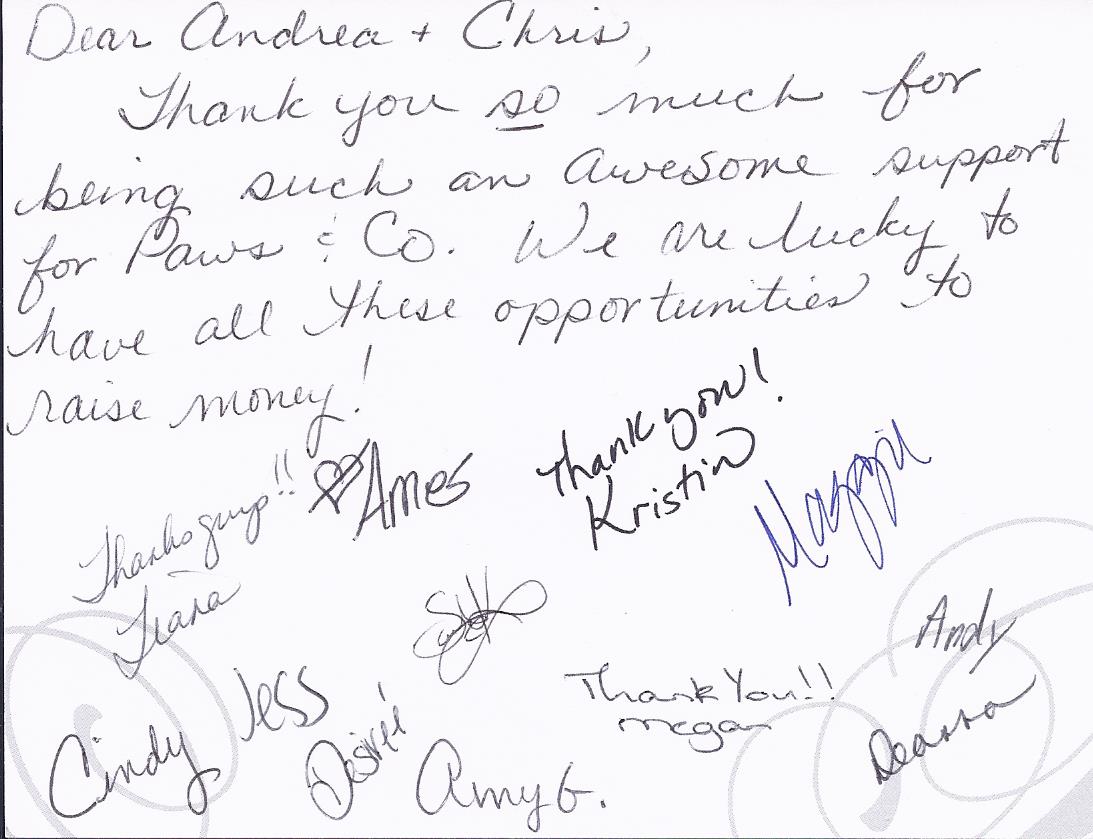 Dear Andrea + Chris,
Thank you so much for
being such an awesome support
for Paws & Co. We are lucky to
have all these opportunities to
raise money!
Thanks guys!!
♡Ames
Thank you!
Kristin
Maggie
Tiana
Andy
Jess
Thank You!!
Megan
Cindy
Desireé
Amy G.
Deanna